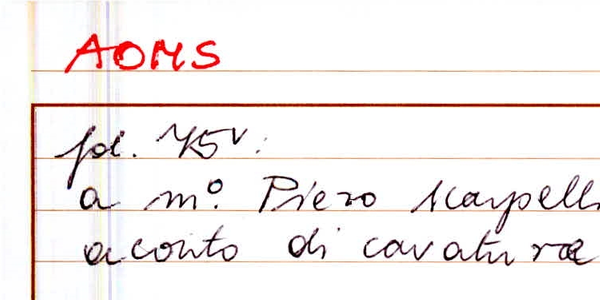 AOMS
fol. 75v:
a mº. Piero scarpelli
aconto di cavatura